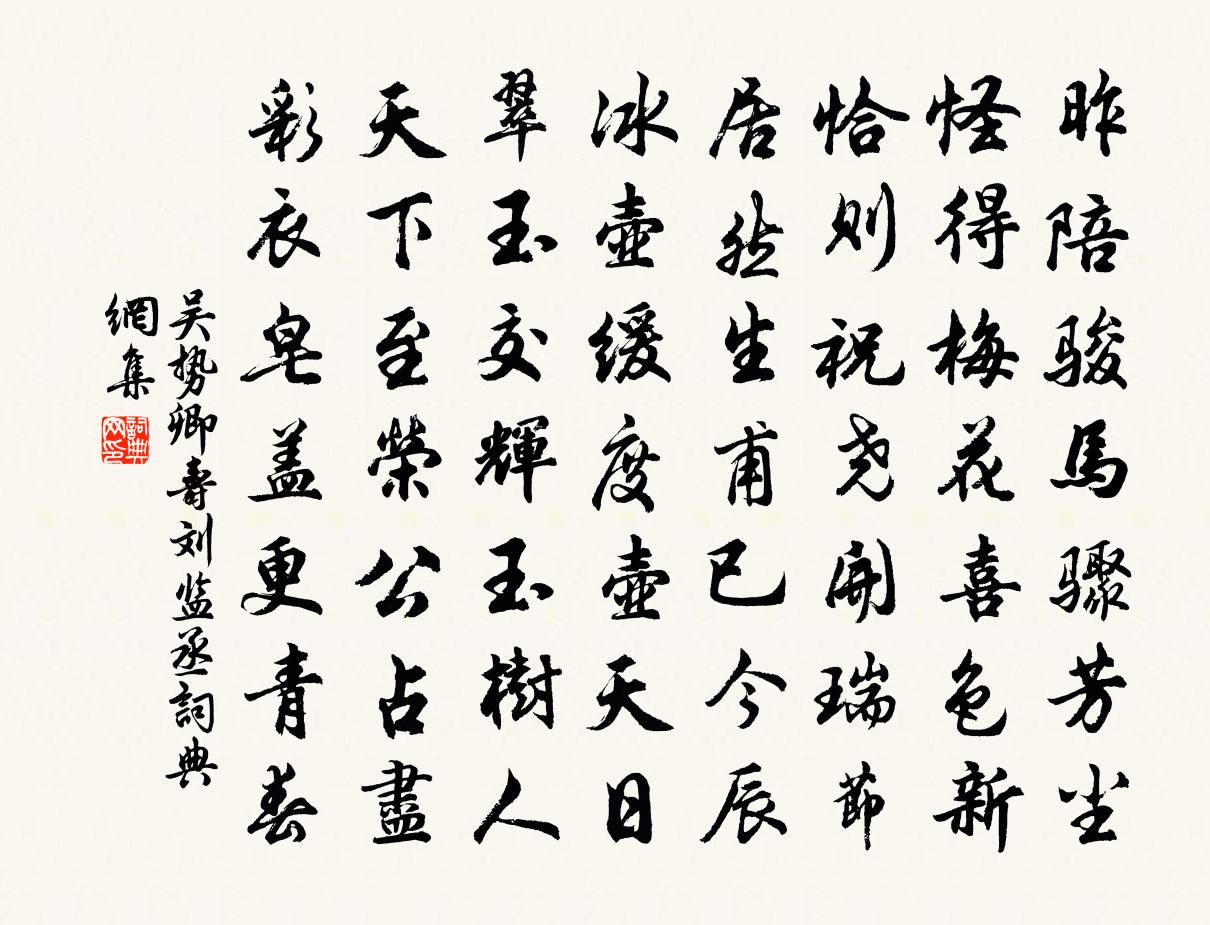 昨陪骏馬骤芳尘
怪得梅花喜色新
恰则祝尧開瑞節
居然生甫已今辰
冰壺緩度壺天日
翠玉交輝玉樹人
天下至榮公占盡
彩衣皂盖更青春
吴势卿壽刘监丞詞典
網集
詞典网印